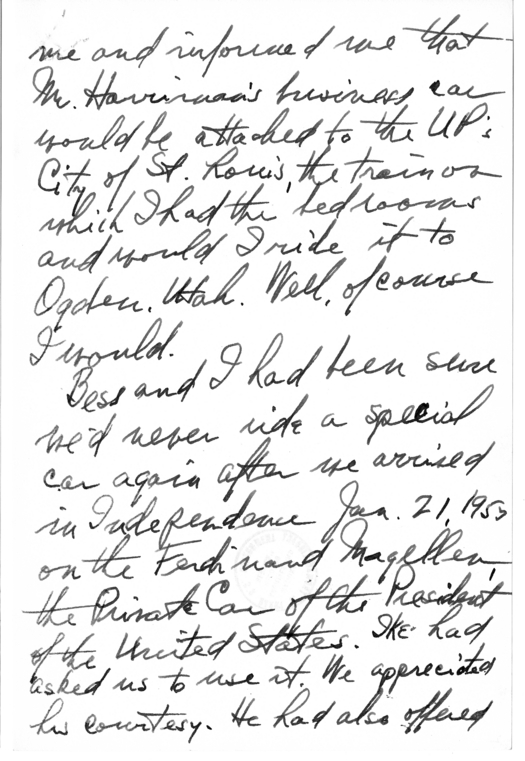 me and informed me that
Mr. Harriman's business car
would be attached to the UP's
City of St. Louis, the train on
which I had the bedrooms
and would I ride it to
Ogden, Utah. Well, of course
I would.
Bess and I had been sure
we'd never ride a special
car again after we arrived
in Independence Jan. 21, 1953
on the Ferdinand Magellen,
the Private Car of the President
of the United States. IKE had
asked us to use it. We appreciated
his courtesy. He had also offered